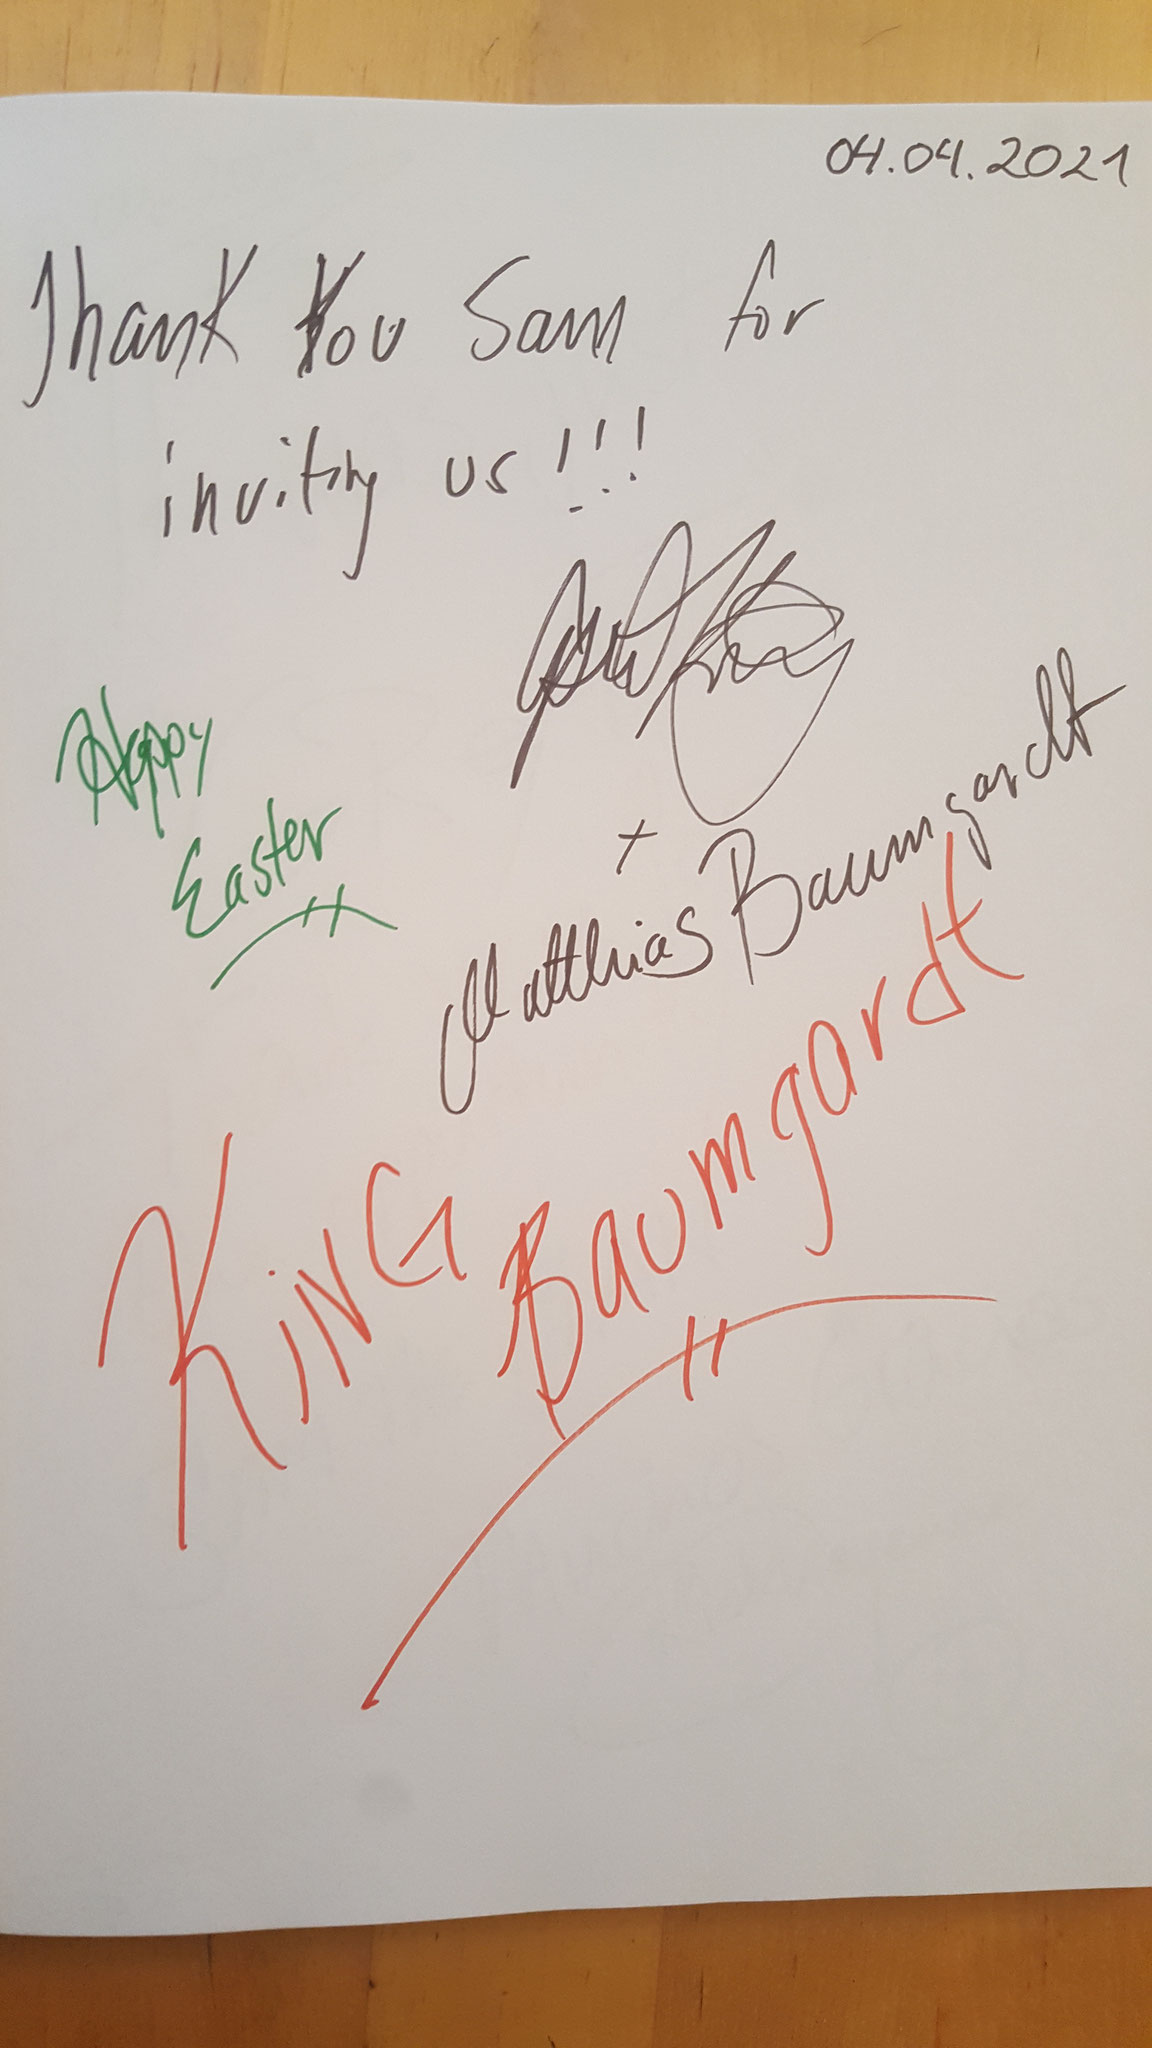 04.04.2021
Thank You Sam for
inviting us!!!
Happy
Easter
+
Matthias Baumgardt
KiNG Baumgardt